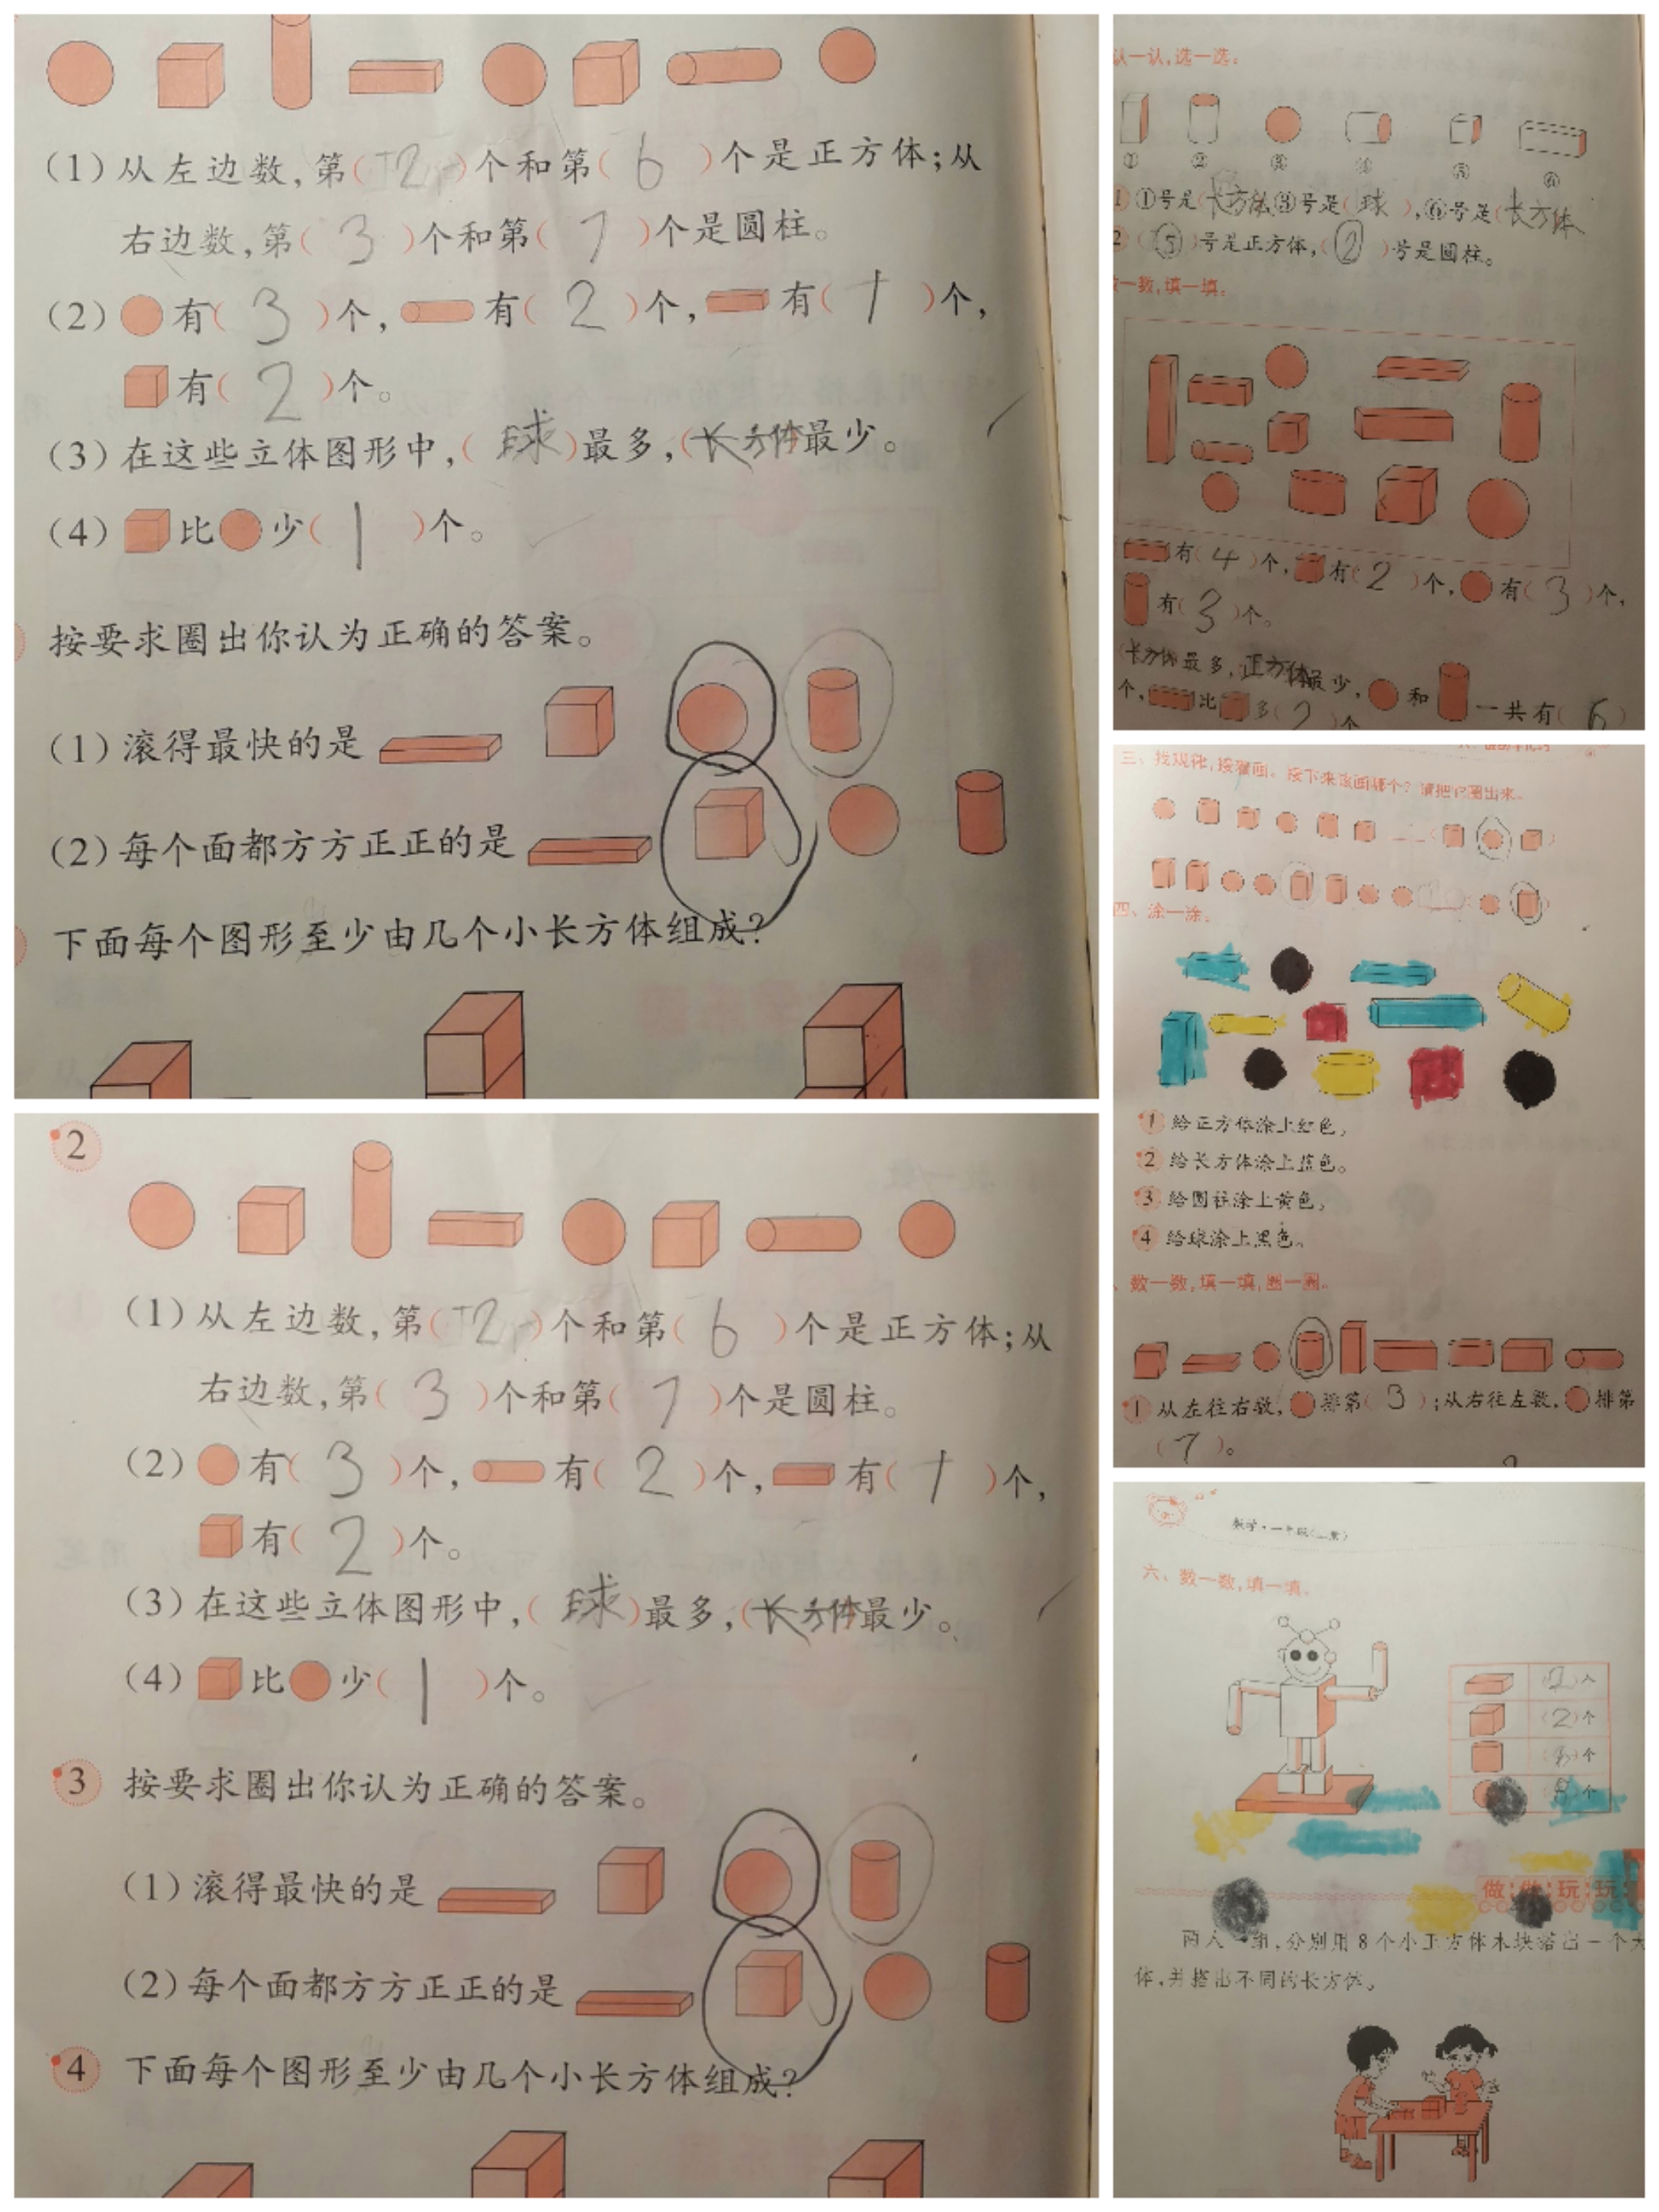 (1)从左边数,第(2)个和第(6)个是正方体;从
右边数,第(3)个和第(7)个是圆柱。
(2)有(3)个,有(2)个,有(1)个,
有(2)个。
(3)在这些立体图形中,(球)最多,(长方体最少。
(4)比少(1)个。
按要求圈出你认为正确的答案。
(1)滚得最快的是
(2)每个面都方方正正的是
下面每个图形至少由几个小长方体组成?
2
(1)从左边数,第(2)个和第(6)个是正方体;从
右边数,第(3)个和第(7)个是圆柱。
(2)有(3)个,有(2)个,有(1)个,
有(2)个。
(3)在这些立体图形中,(球)最多,(长方体最少。
(4)比少(1)个。
3 按要求圈出你认为正确的答案。
(1)滚得最快的是
(2)每个面都方方正正的是
4 下面每个图形至少由几个小长方体组成?
认一认,选一选。
① ② ③ ④ ⑤ ⑥
1 ①号是(长方体③号是(球),⑥号是(长方体
2 (⑤)号是正方体,(②)号是圆柱。
一数,填一填。
有(4)个,有(2)个,有(3)个,
有(3)个。
(长方体最多,正方体最少,和一共有(6)
个,比多(2)个
三、找规律,接着画。接下来该画哪个?请把它圈出来。
四、涂一涂。
1 给正方体涂上红色。
2 给长方体涂上蓝色。
3 给圆柱涂上黄色。
4 给球涂上黑色。
、数一数,填一填,圈一圈。
1 从左往右数,排第(3);从右往左数,排第
(7)。
数学·一年级(上册)
六、数一数,填一填。
个
(2)个
个
个
做做玩玩
两人一组,分别用8个小正方体木块搭出一个大
体,并搭出不同的长方体。